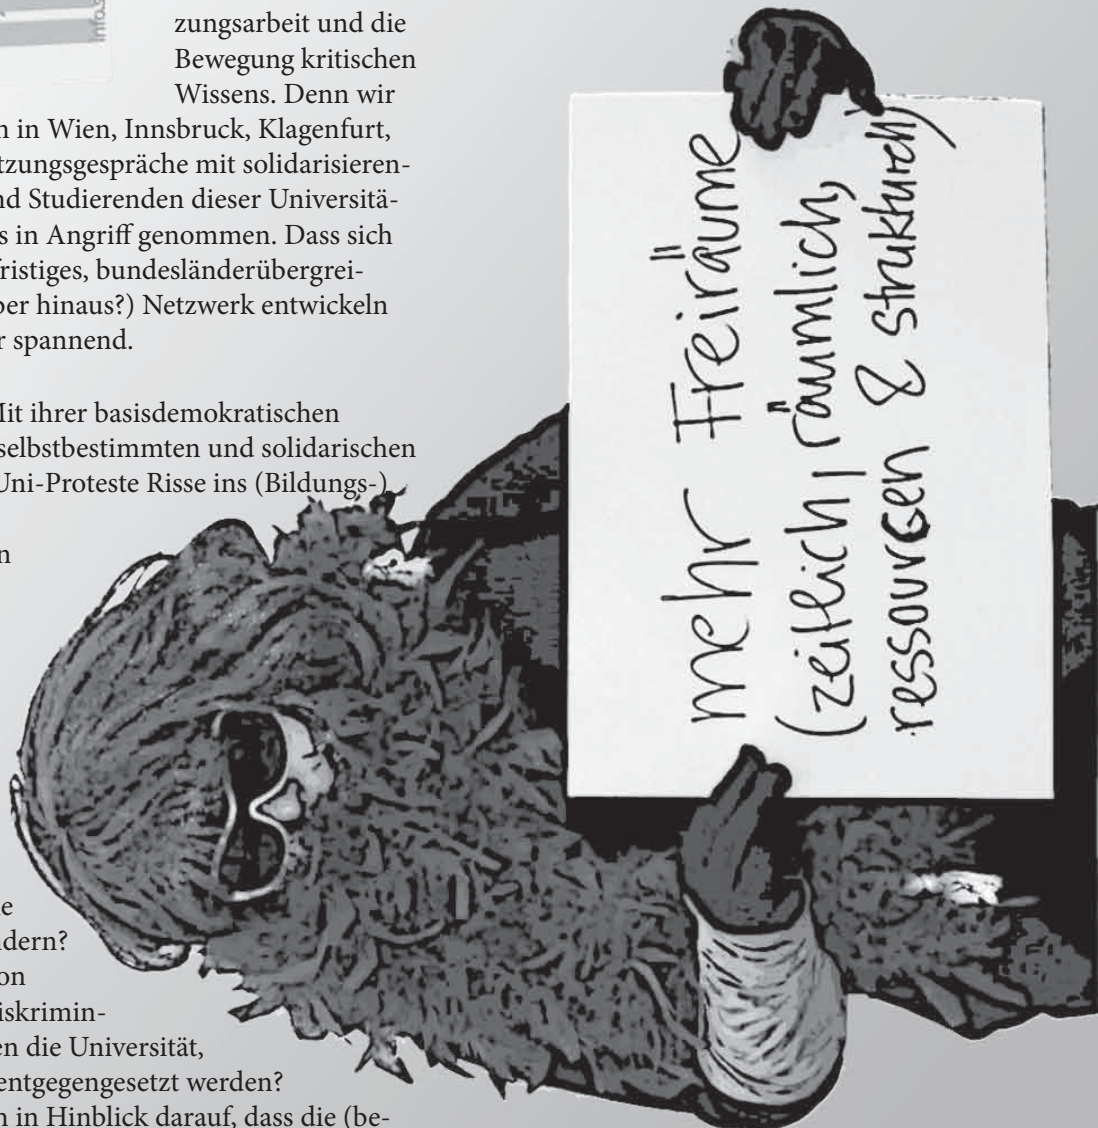 zungsarbeit und die
Bewegung kritischen
Wissens. Denn wir
in Wien, Innsbruck, Klagenfurt,
tzungsgespräche mit solidarisieren-
nd Studierenden dieser Universitä-
s in Angriff genommen. Dass sich
fristiges, bundesländerübergrei-
ber hinaus?) Netzwerk entwickeln
r spannend.
Mit ihrer basisdemokratischen
selbstbestimmten und solidarischen
Uni-Proteste Risse ins (Bildungs-)
n
e
ndern?
on
iskrimin-
en die Universität,
entgegengesetzt werden?
n in Hinblick darauf, dass die (be-
mehr Freiräume
(zeitlich, räumlich,
ressourcen & strukturen)